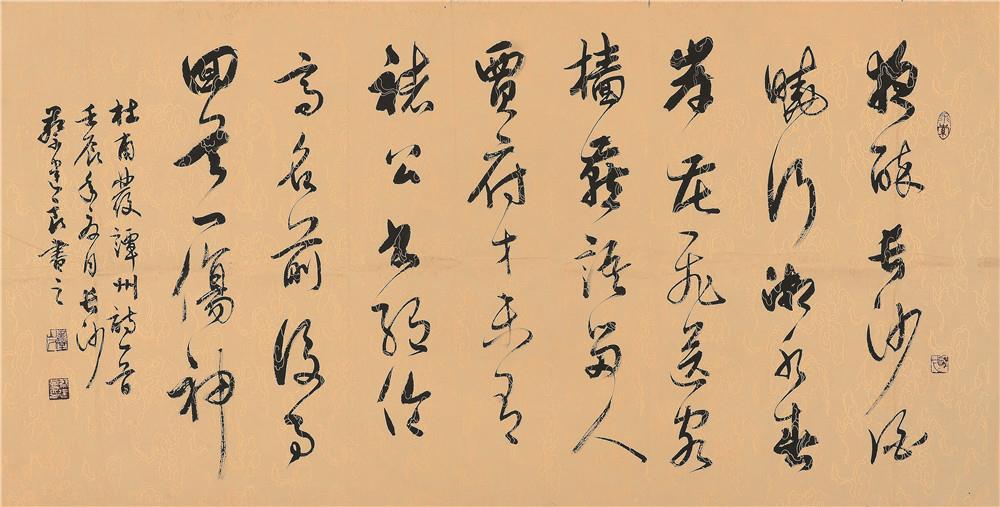 夜醉長沙酒
曉行湘水春
岸花飛送客
檣燕語留人
賈府才未有
褚公書絕倫
高名前後事
回首一傷神
杜甫發潭州詩一首
壬辰年夏月長沙
書之